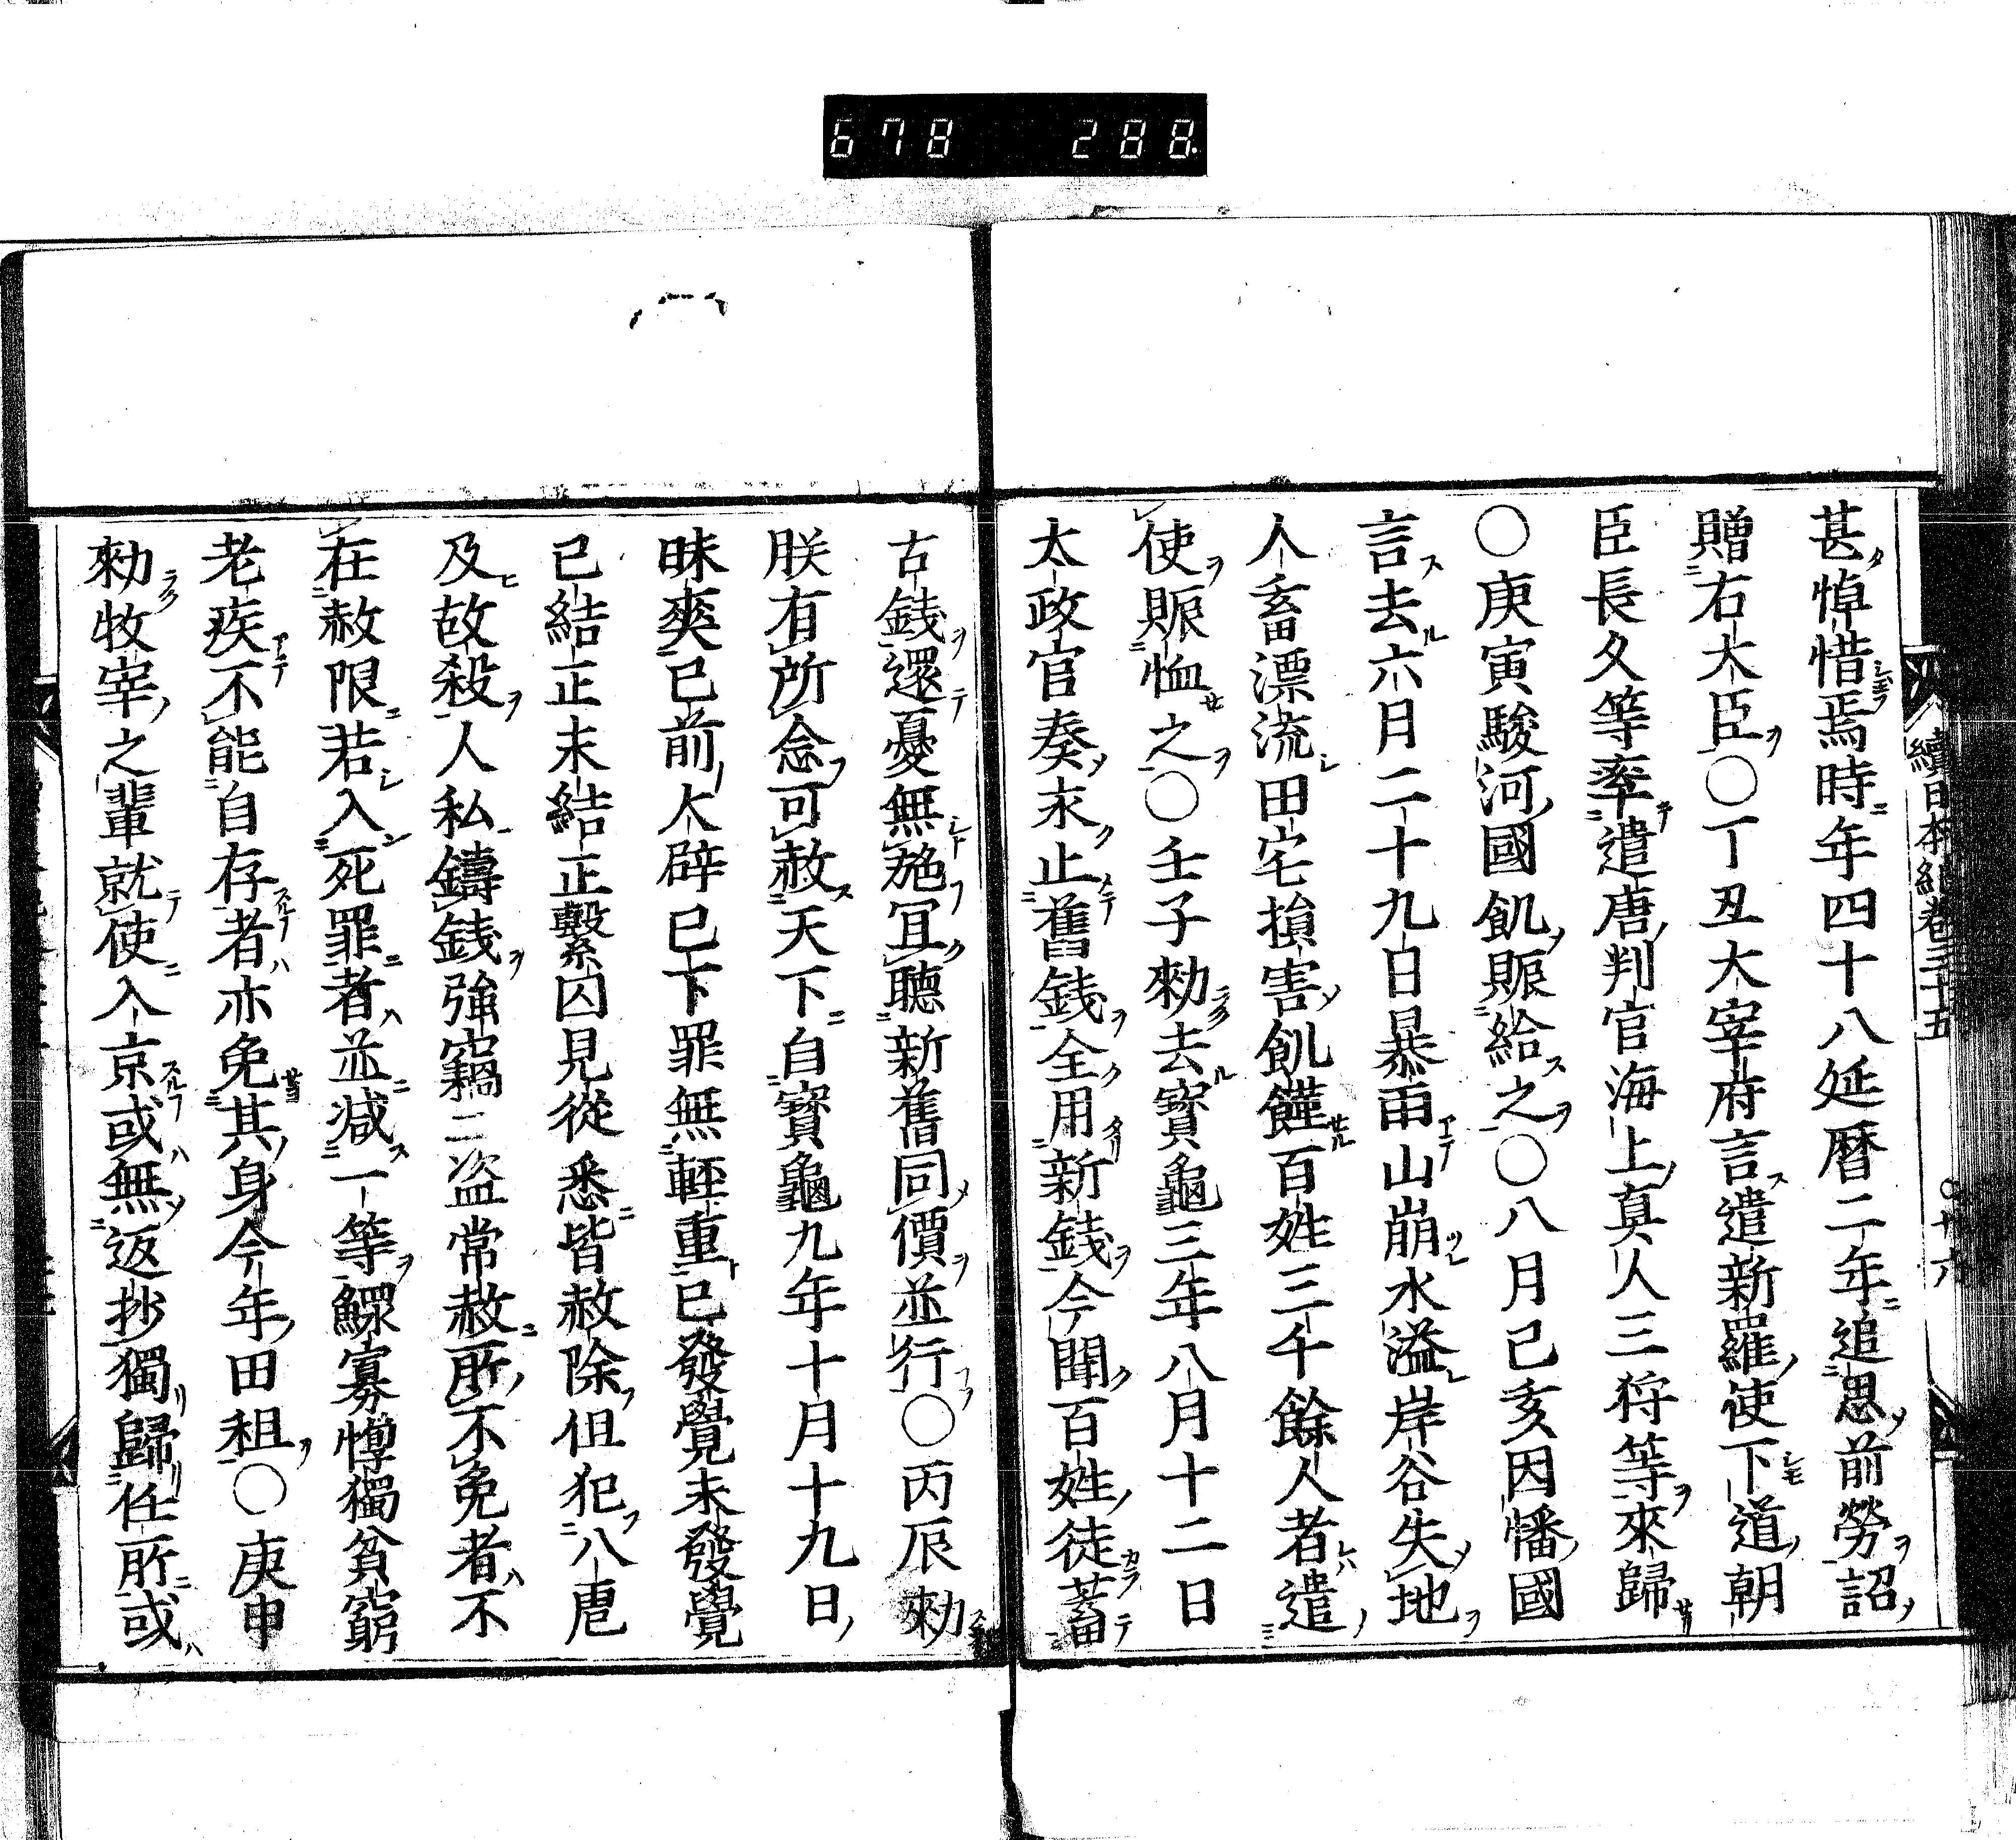 678 288
續日本紀卷三十五
○十六
甚悼惜焉時年四十八延暦二年追思前勞詔
贈右大臣○丁丑大宰府言遣新羅使下道朝
臣長久等率遣唐判官海上真人三狩等來歸
○庚寅駿河國飢賑給之○八月己亥因幡國
言去六月二十九日暴雨山崩水溢岸谷失地
人畜漂流田宅損害飢饉百姓三千餘人者遣
使賑恤之○壬子勅去寳龜三年八月十二日
太政官奏永止舊錢全用新錢今聞百姓徒蓄
古錢還憂無施冝聽新舊同價並行○丙辰勅
朕有所念可赦天下自寳龜九年十月十九日
昧爽已前大辟已下罪無輕重已發覺未發覺
已結正未結正繫囚見從悉皆赦除但犯八虐
及故殺人私鑄錢強竊二盗常赦所不免者不
在赦限若入死罪者並減一等鰥寡惸獨貧窮
老疾不能自存者亦免其身今年田租○庚申
勅牧宰之輩就使入京或無返抄獨歸任所或